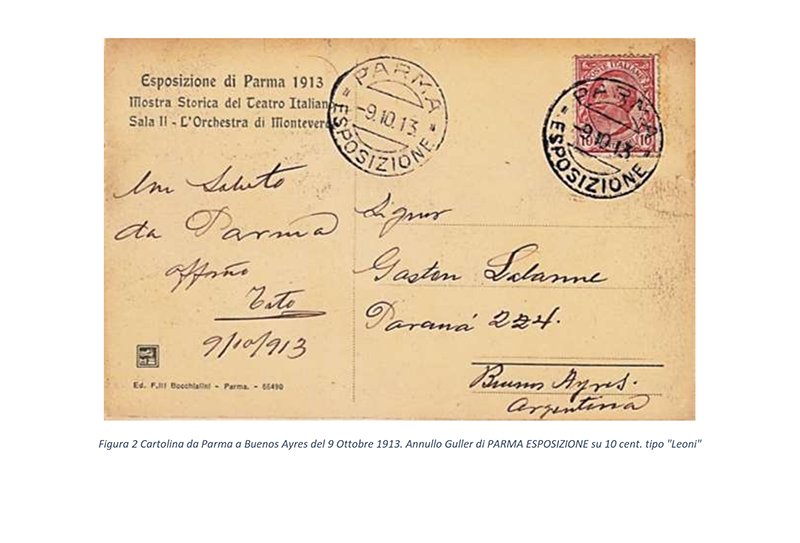 Esposizione di Parma 1913
Mostra Storica del Teatro Italian
Sala II - L'Orchestra di Montever
PARMA
-9.10.13
ESPOSIZIONE
POSTE ITALIANE
10 10
PARMA
-9.10.13
ESPOSIZIONE
Un Saluto
da Parma
affmo
Tato
9/10/913
Signor
Gaston
Paraná 224.
Buenos Ayres.
Argentina
Ed. F.lli Bocchialini - Parma. - 55490
Figura 2 Cartolina da Parma a Buenos Ayres del 9 Ottobre 1913. Annullo Guller di PARMA ESPOSIZIONE su 10 cent. tipo "Leoni"